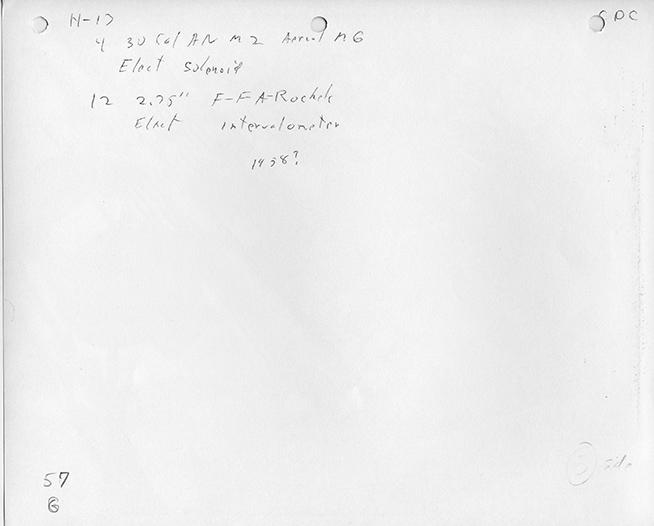 H-13
SDC
4 30 Cal AN M2 Aerial MG
Elect Solenoid
12 2.75" F-F A-Rockets
Elect intervalometer
1958?
side
57
G